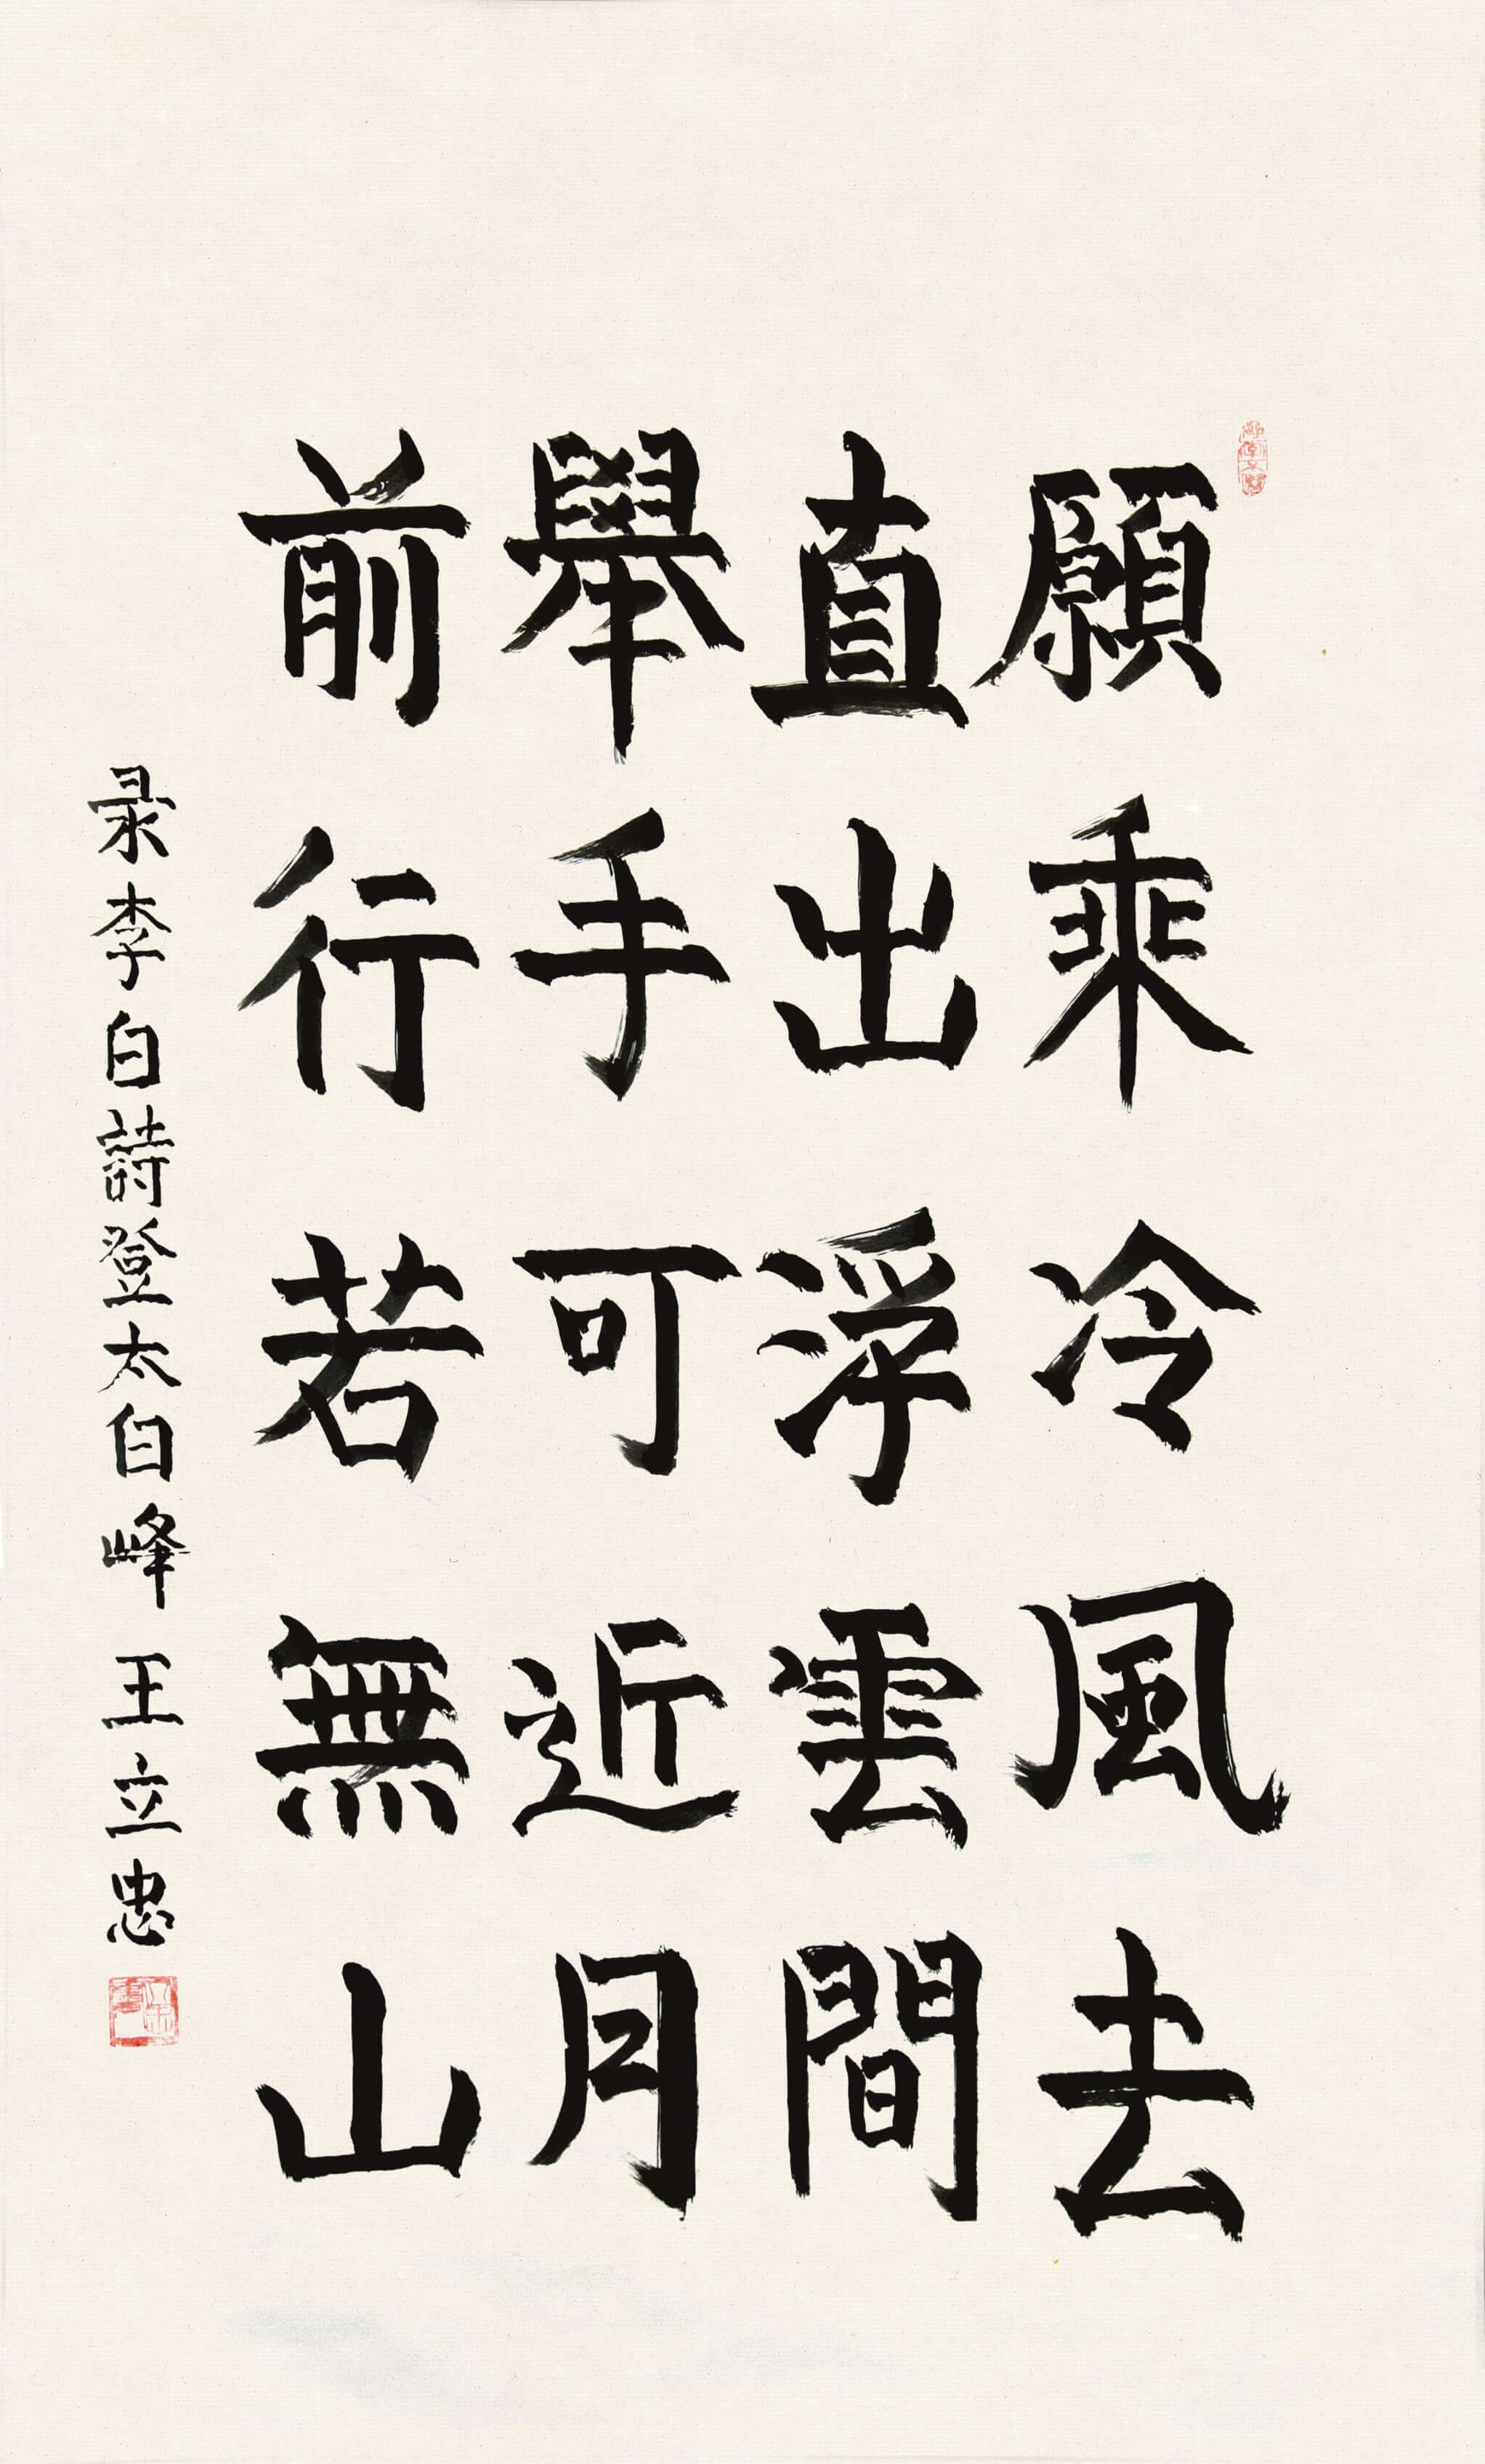 願乘冷風去
直出浮雲間
舉手可近月
前行若無山
录李白詩登太白峰 王立忠